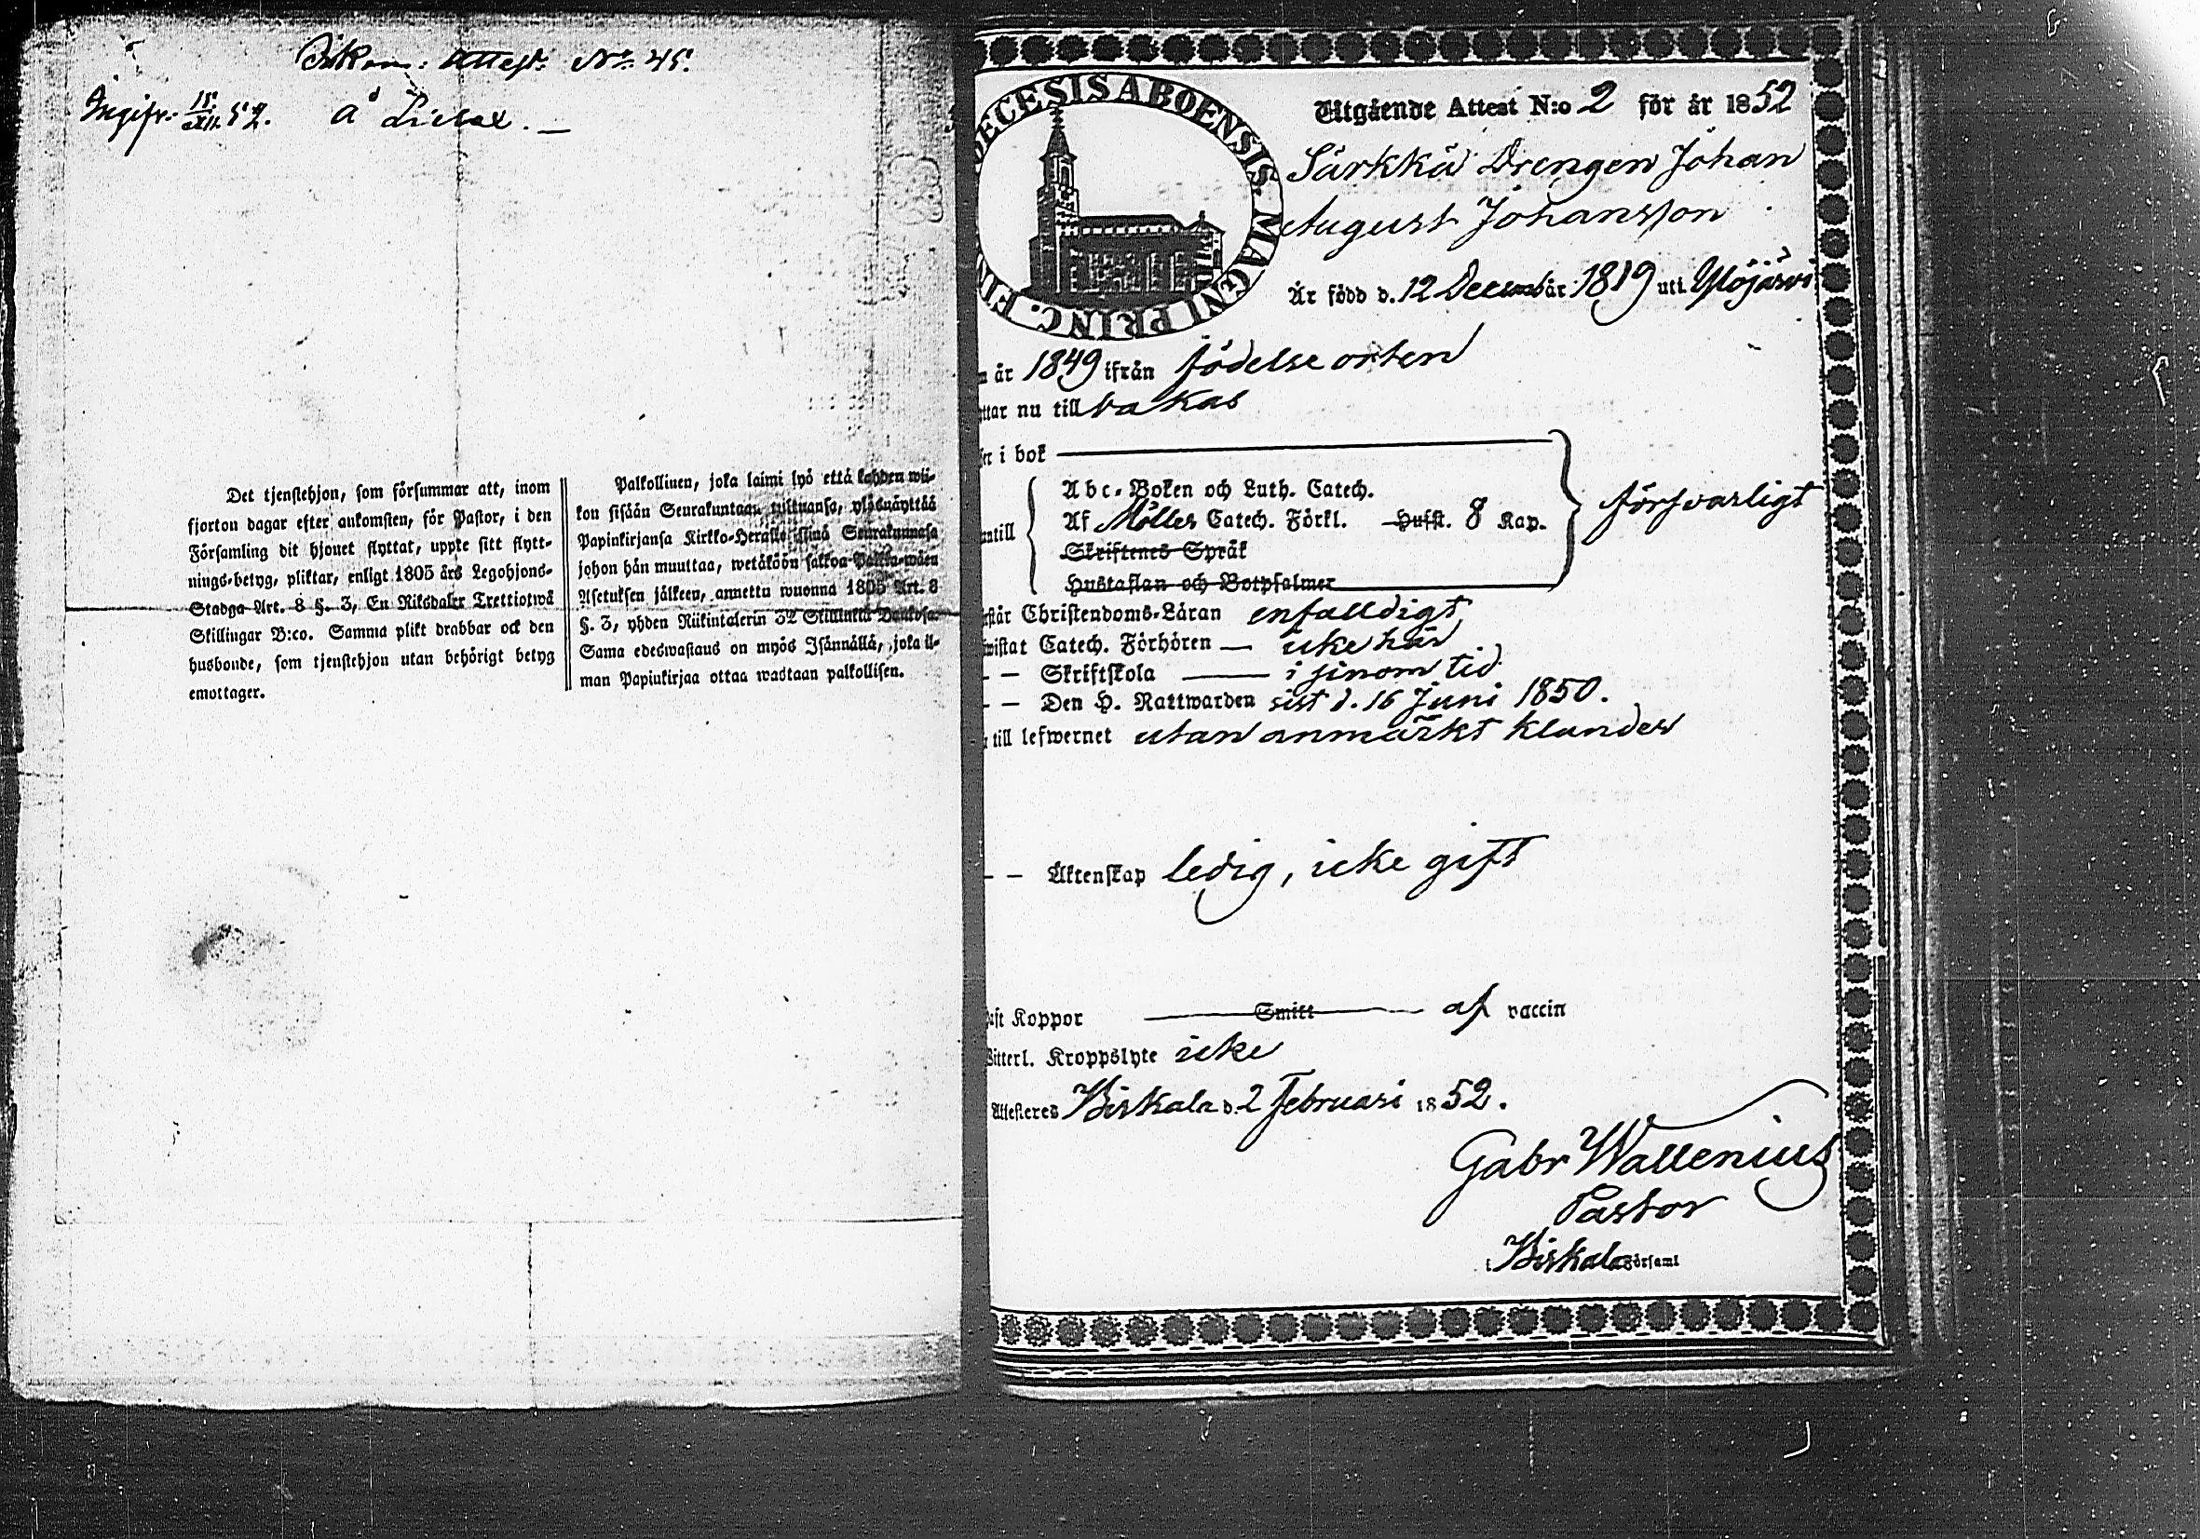 Inkom: Attest. No 45.
Ingifv. 15/XII. 52. å Lielax. —
Det tjenstehjon, som försummar att, inom
fjorton dagar efter ankomsten, för Pastor, i den
Församling dit hjonet flyttat, uppte sitt flytt-
nings-betyg, pliktar, enligt 1805 års Legohjons-
Stadga Art. 8 §. 3, En Riksdaler Trettiotwå
Skillingar B:co. Samma plikt drabbar ock den
husbonde, som tjenstehjon utan behörigt betyg
emottager.
Palkollinen, joka laimi lyö että kahden wii-
kon sisään Seurakuntaan tultuansa, ylösnäyttää
Papinkirjansa Kirkko-Herralle siinä Seurakunnasa
johon hän muuttaa, wetäköön sakkoa Palkka-wäen
Asetuksen jälkeen, annettu wuonna 1805 Art. 8
§. 3, yhden Riikintalerin 32 Skillinkiä Bankosa.
Sama edeswastaus on myös Isännällä, joka il-
man Papinkirjaa ottaa wastaan palkollisen.
DECESIS ABOENSIS. MAGNI PRINC. FIN
Utgående Attest N:o 2 för år 1852
Särkkä Drengen Johan
August Johansson
Är född d. 12 Decemb år 1819 uti Ylöjärwi
år 1849 ifrån födelse orten
ttar nu till Wakas
i bok
Abc-Boken och Luth. Catech.
Af Möllers Catech. Förkl. Husst. 8 Kap.
Skriftenes Språk
Hustaflan och Botpsalmer
försvarligt
ntill
står Christendoms-Läran enfaldigt
wistat Catech. Förhören — icke här
— — Skriftskola — i sinom tid
— — Den H. Nattwarden sist d. 16 Juni 1850.
till lefwernet utan anmärkt klander
— — Äktenskap ledig, icke gift
ft Koppor Smitt af vaccin
Witterl. Kroppslyte icke
Attesteres Birkala d. 2 Februari 1852.
Gabr Wallenius
Pastor
i Birkala Församl